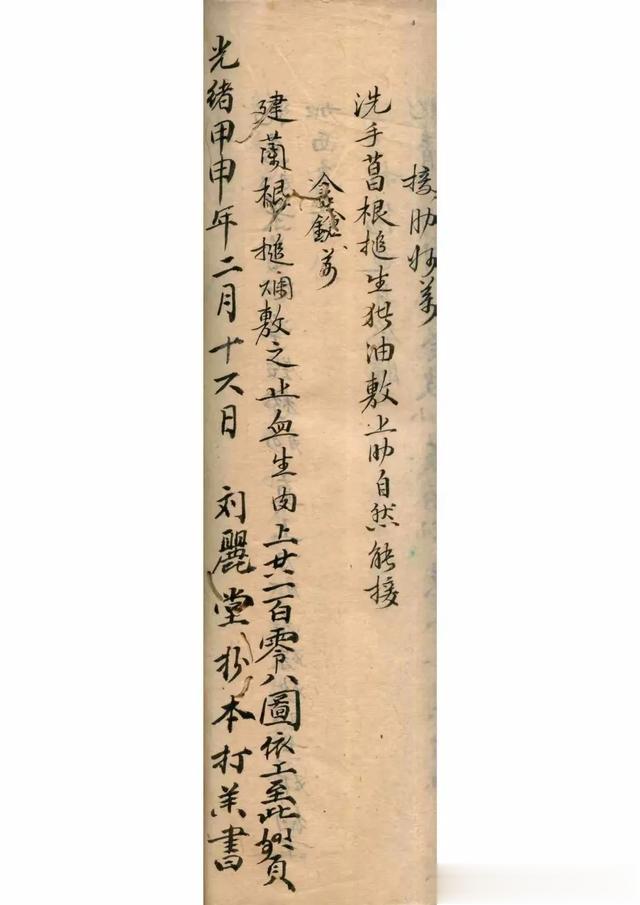 接肋妙药
洗手菖根搥生猪油敷上肋自然能接
金鎗药
建蘭根搥爛敷之止血生肉上共一百零八圖依工至此
光緒甲申年二月十六日 刘麗堂抄本打药書